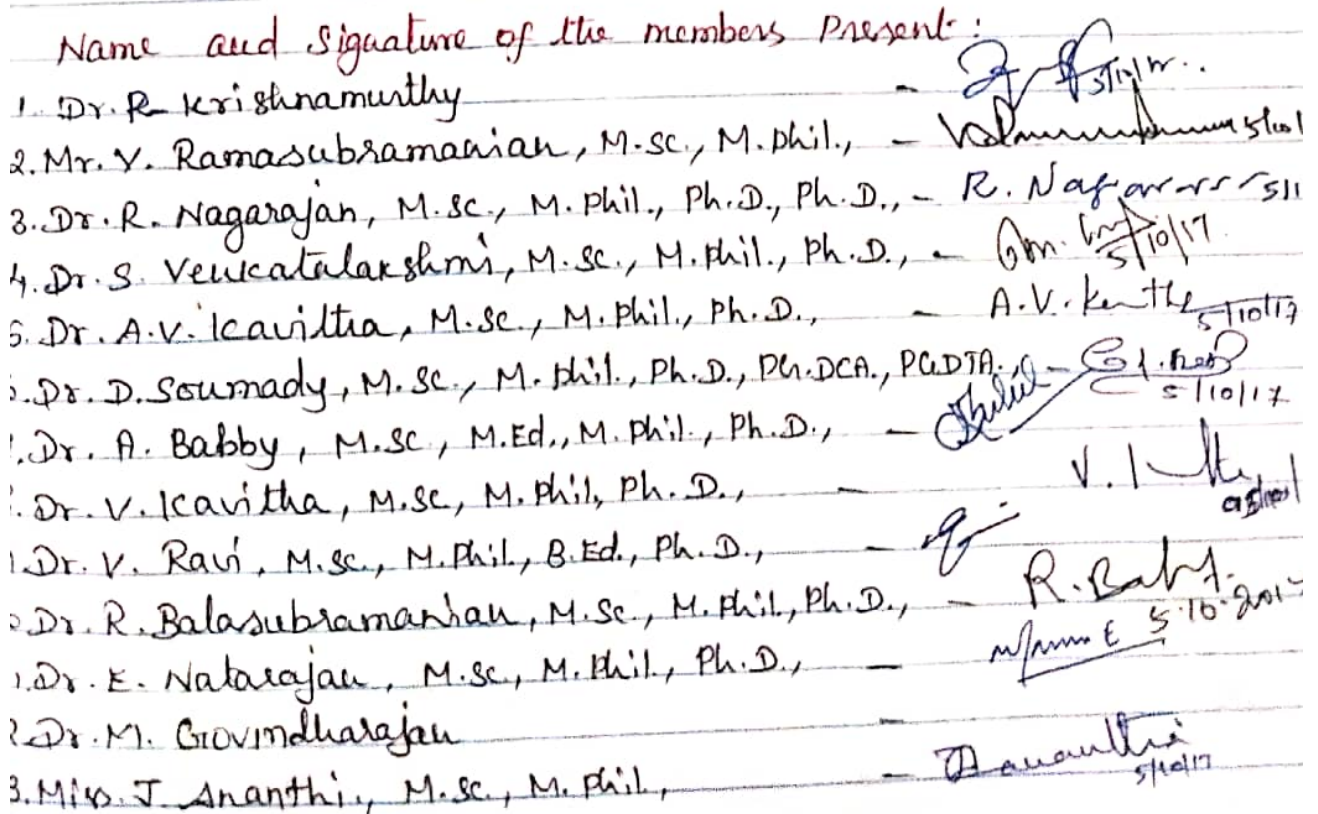 Name and Signature of the members Present:
1. Dr. R Krishnamurthy -
2. Mr. V. Ramasubramanian, M.Sc., M.phil., -
3. Dr. R. Nagarajan, M.Sc., M.Phil., Ph.D., Ph.D., - R. Nagarajan
4. Dr. S. Venkatalakshmi, M.Sc., M.Phil., Ph.D., - 5/10/17
5. Dr. A.V. Kavitha, M.Sc., M.Phil., Ph.D., - A.V. 5/10/17
.Dr. D. Soumady, M.Sc., M.phil., Ph.D., PG.DCA., PGDTA., - 5/10/17
.Dr. A. Babby, M.Sc, M.Ed., M.Phil., Ph.D., -
.Dr. V. Kavitha, M.Sc, M.Phil, Ph.D., - V.
.Dr. V. Ravi, M.Sc., M.Phil., B.Ed., Ph.D., -
.Dr. R. Balasubramanian, M.Sc., M.Phil., Ph.D., - R. 5.10.201
.Dr. E. Natarajan, M.Sc., M.Phil., Ph.D., -
.Dr. M. Govindharajan -
3. Miss. J. Ananthi., M.Sc., M.Phil, - 5/10/17